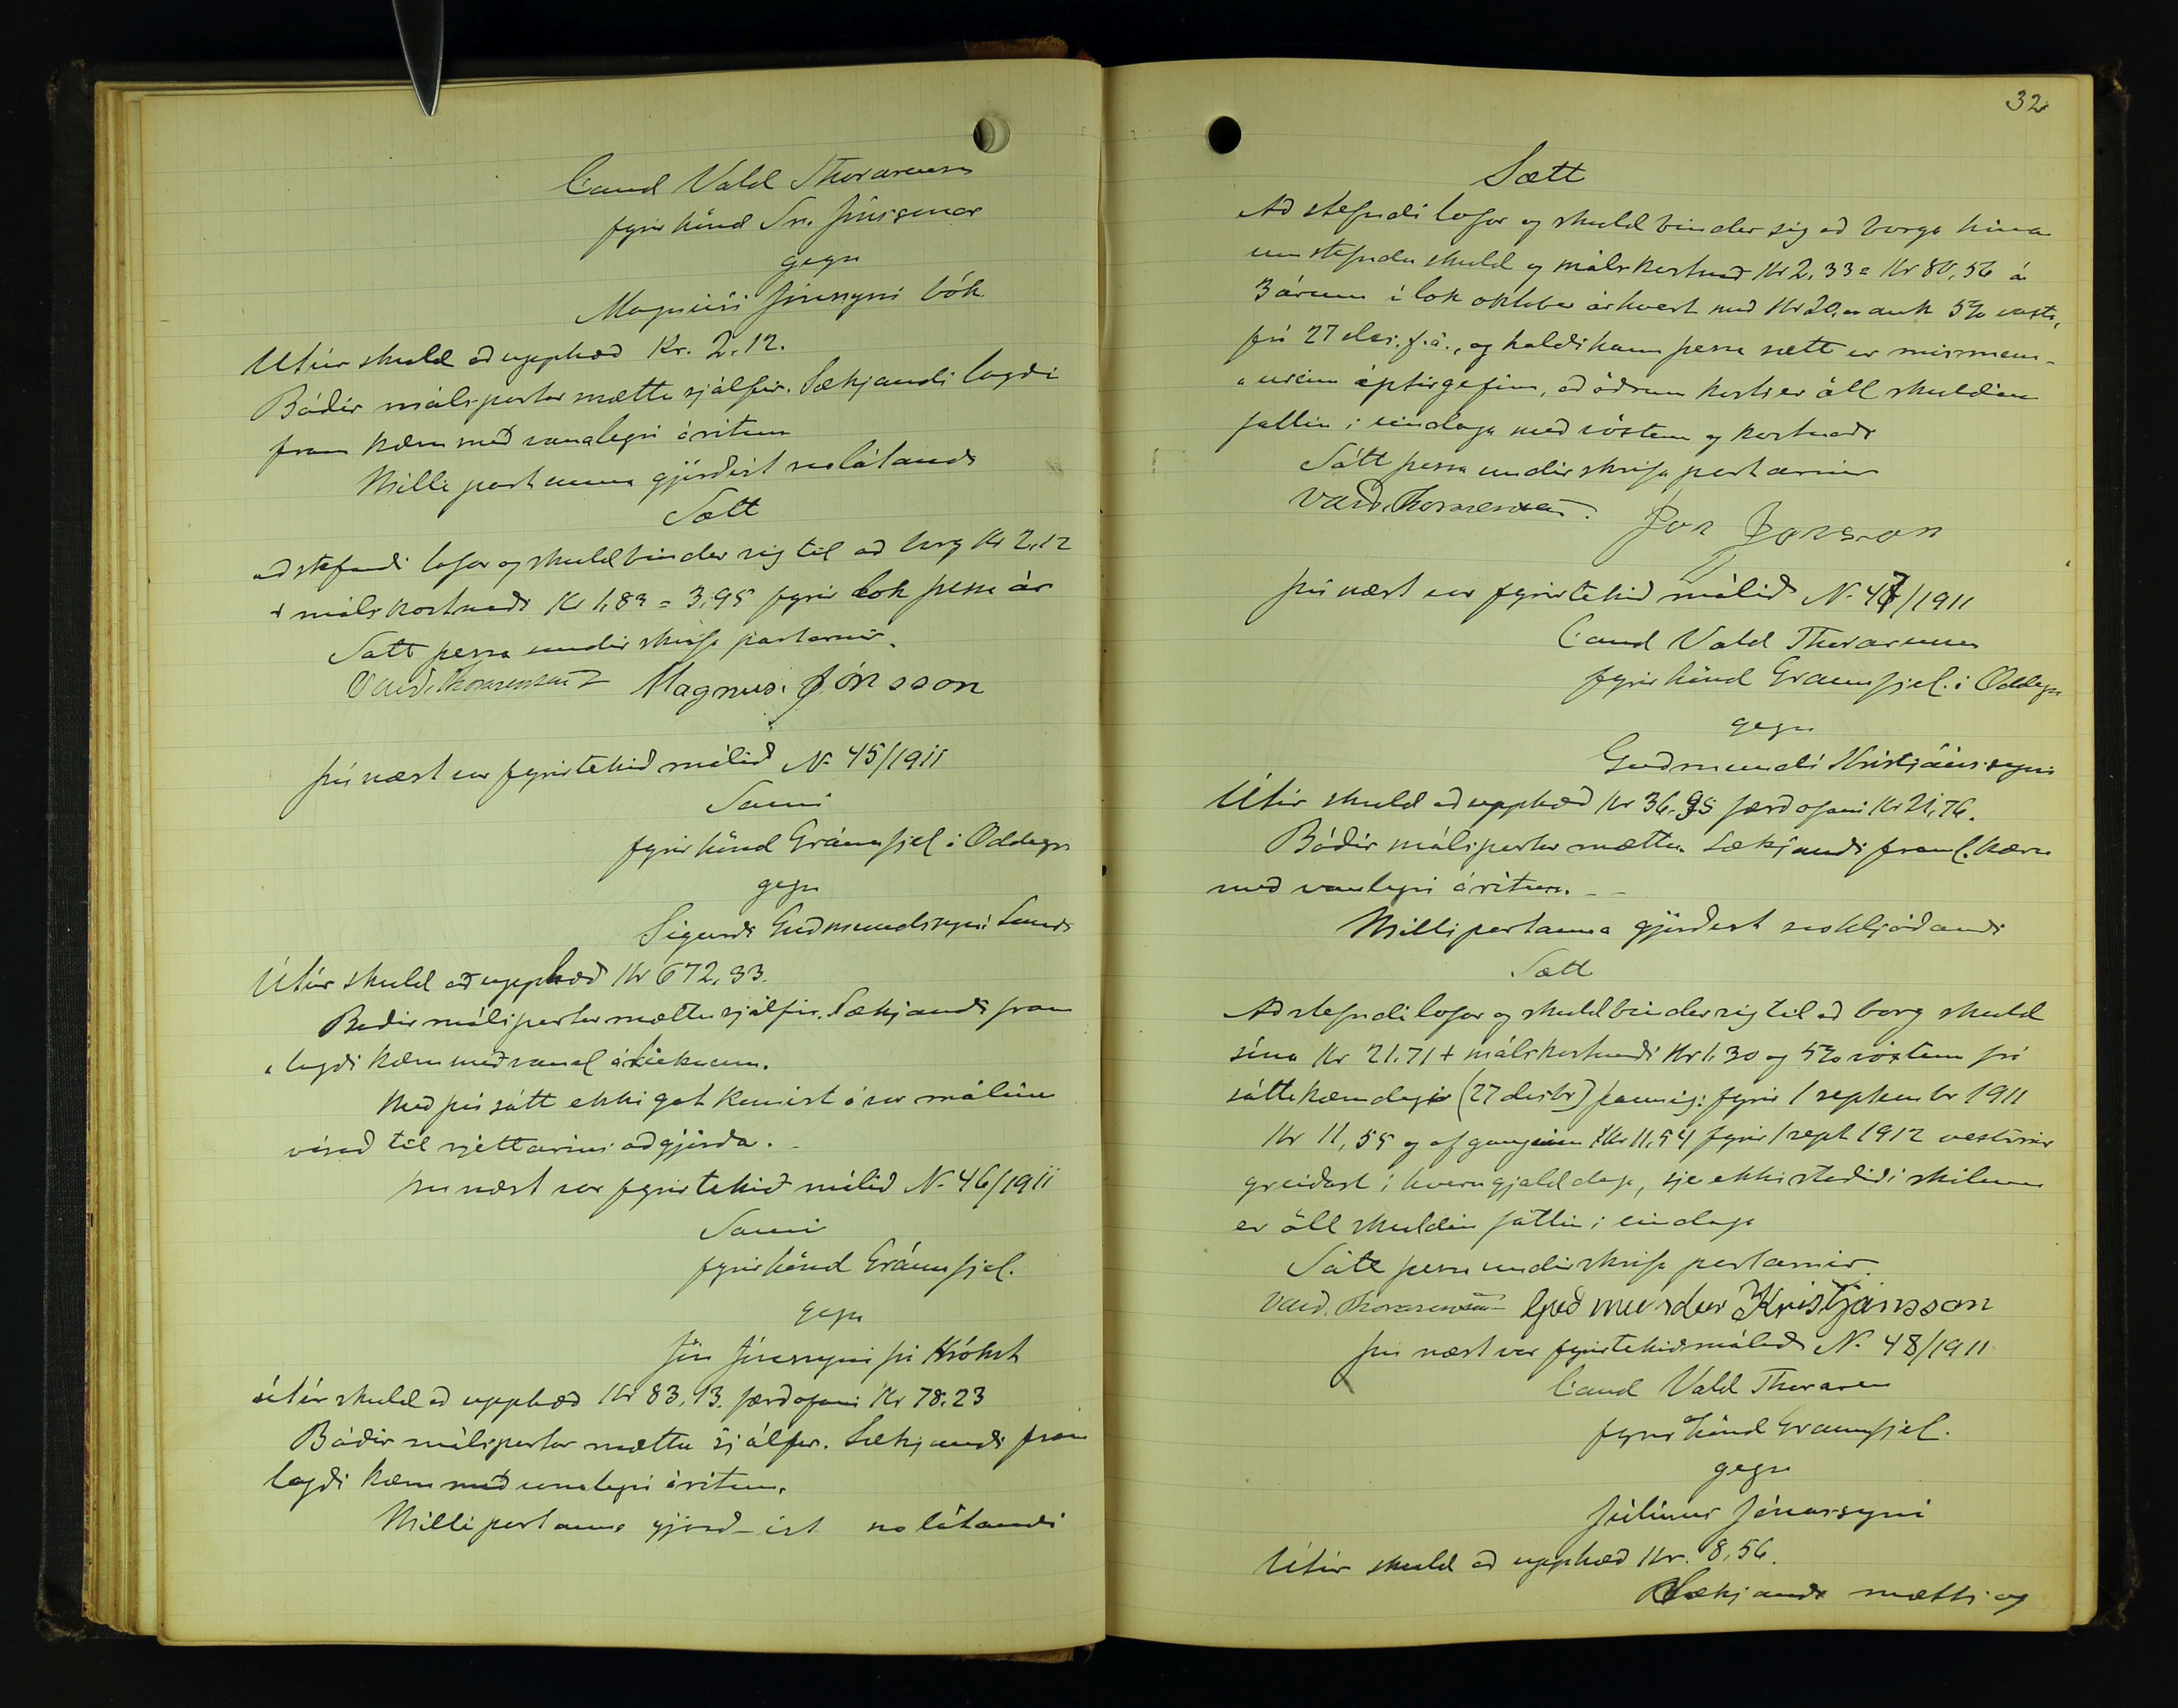 Cand Vald Thorarensen
fyrir hönd Sn. Jónssonar
gegn
Magnúsi Jónssyni bók
Útúr skuld að upphæð Kr. 2.12.
Báðir málspartar mættu sjálfir. Sækjandi lagði
fram kæru með vanalegri áritun
Milli partanna gjörðist svolátandi
Sætt
að stefndi lofar og skuldbindur sig til að borg Kr 2,12
+ málskostnaði Kr 1,83 = 3,95 fyrir lok þessa árs
Sætt þessa undirskrifa partarnir.
Vald. Thorarensen Magnus. Jónsson
Þú næst var fyrirtekið málið N. 45/1911
Sami
fyrir hönd Gránufjel. á Oddeyri
gegn
Sigurði Guðmundssyni Lundi
Útúr skuld að upphæð Kr 672,33.
Báðir málspartar mættu sjálfir. Sækjandi fram
lagði kæru með vanal
Með því sátt ekki gat komist á var málinu
vísað til rjettarins aðgjörða.
Þú næst var fyrirtekið málið N. 46/1911
Sami
fyrir hönd Gránufjel.
gegn
Jón Jónssyni frá
útúr skuld að upphæð Kr 83,13. færð ofaní Kr 78.23
Báðir málspartar mættu sjálfir. Sækjandi fram
lagði kæru með vanalegri áritun.
Milli partanna gjörð-ist svolátandi
32
Sætt
Að stefndi lofar og skuldbindur sig að borga hina
umstefndu skuld og málskostnað Kr 2,33 = Kr 80,56 á
3 árum í lok oktober ár hvert með Kr 20, auk 5% vaxta,
frá 27 des. f.á., og haldi hann þessa sætt er
eptirgefinn, að öðrum kosti er öll skuldin
fallin í eindaga með vöxtum og kostnaði
Sátt þessa undirskrifa partarnir
Vald. Thorarensen. Jon Jonsson
Þú næst var fyrirtekið málið N. 47/1911
Cand Vald Thorarensen
fyrir hönd Gránufjel. á Oddeyri
gegn
Guðmundi Kristjánssyni
Útúr skuld að upphæð Kr 36.95 færð ofaní Kr 21,76.
Báðir málspartar mættu. Sækjandi framl. kæru
með vanlegri áritun. -
Milli partanna gjörðist svohljóðandi
Sætt
Að stefndi lofar og skuldbindur sig til að borg skuld
sína Kr 21.71 + málskostnaði Kr 1.30 og 5% vöxtum frá
sáttakærudegi (27 desbr) þannig: fyrir 1 september 1911
Kr 11,55 og afganginn Kr 11,54 fyrir 1 sept 1912 vextirnir
greiðast í hvern gjalddaga, sje ekki staðið í skilum
er öll skuldin fallin í eindaga
Sátt þessa undirskrifa partarnir
Vald. Thorarensen Guðmundur Kristjánsson
Þú næst var fyrirtekið málið N. 48/1911
Cand Vald Thoraren
fyrir hönd Gránufjel.
gegn
Júlíusi Jónassyni
Útúr skuld að upphæð Kr. 8,56.
Sækjandi mætti og